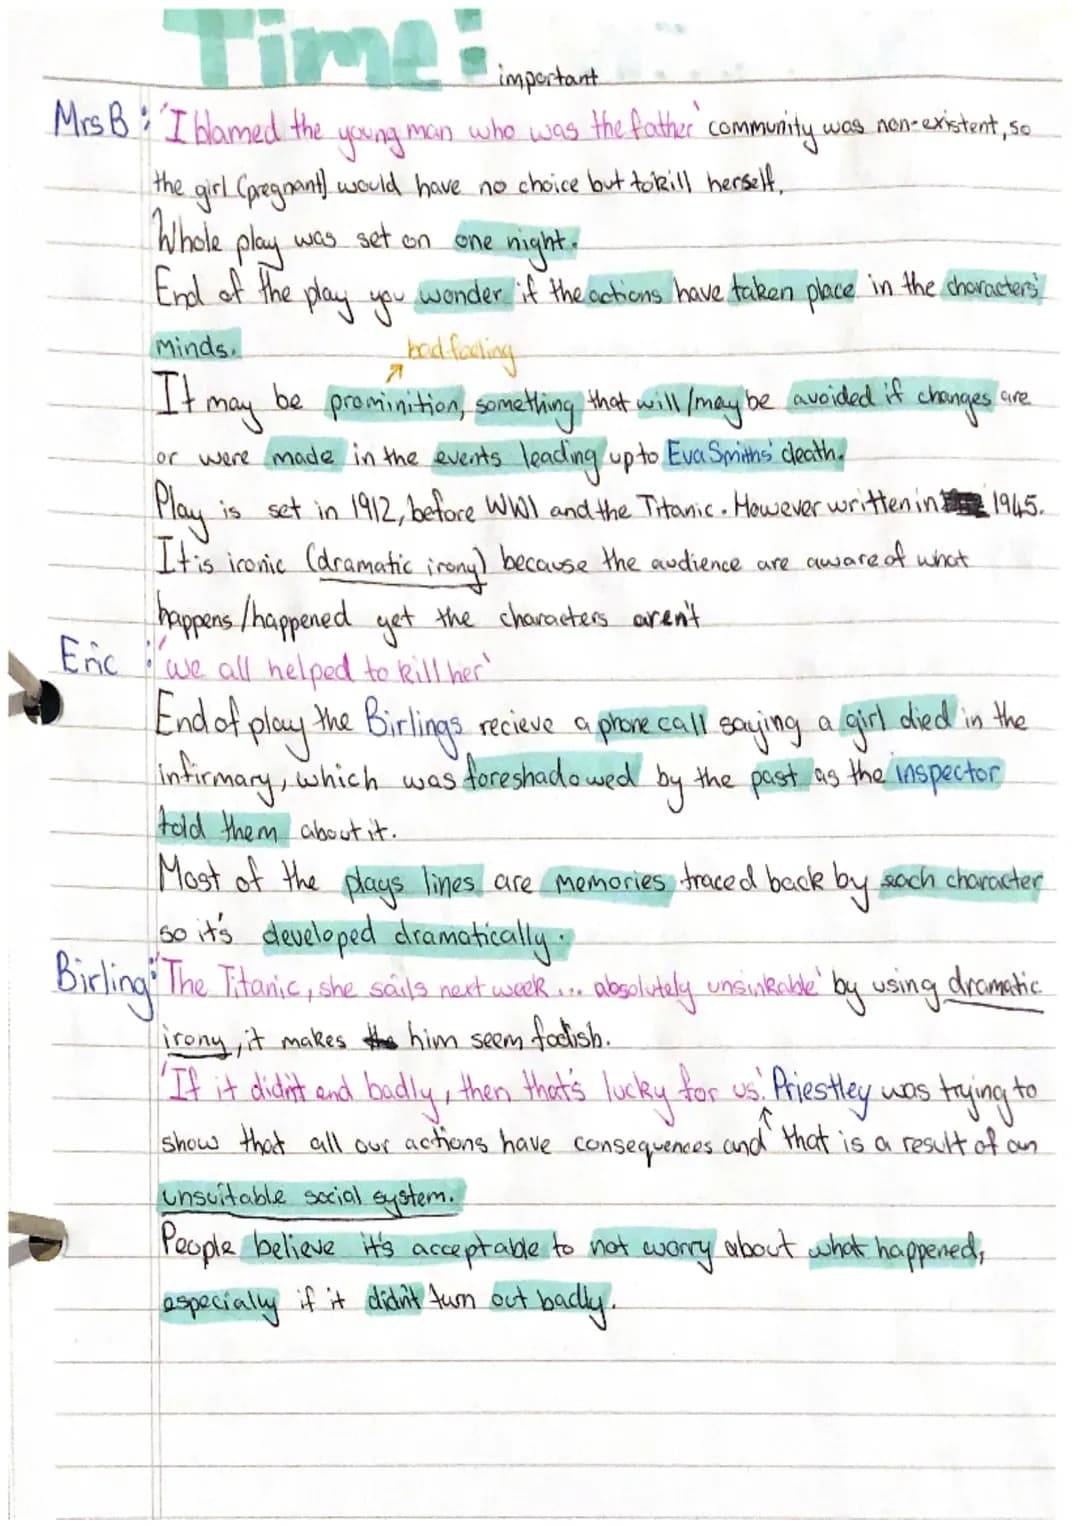 Time:
important
Mrs B : 'I blamed the young man who was the father' community was non-existent, so
the girl (pregnant) would have no choice but to kill herself.
Whole play was set on one night.
End of the play you wonder if the actions have taken place in the characters'
minds.
bad feeling
It may be prominition, something that will/may be avoided if changes are
or were made in the events leading up to Eva Smiths' death.
Play is set in 1912, before WW1 and the Titanic. However written in 1945.
It is ironic (dramatic irony) because the audience are aware of what
happens/happened yet the characters aren't
Eric : 'we all helped to kill her'
End of play the Birlings recieve a phone call saying a girl died in the
infirmary, which was foreshadowed by the past as the inspector
told them about it.
Most of the plays lines are memories traced back by each character
so it's developed dramatically.
Birling: 'The Titanic, she sails next week ... absolutely unsinkable' by using dramatic
irony, it makes him seem foolish.
'If it didn't end badly, then that's lucky for us.' Priestley was trying to
show that all our actions have consequences and that is a result of an
unsuitable social system.
People believe it's acceptable to not worry about what happened,
especially if it didn't turn out badly.